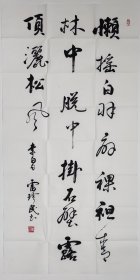 懶搖白羽扇裸袒青
林中脫巾掛石壁露
頂灑松風
李白 雷珍民書